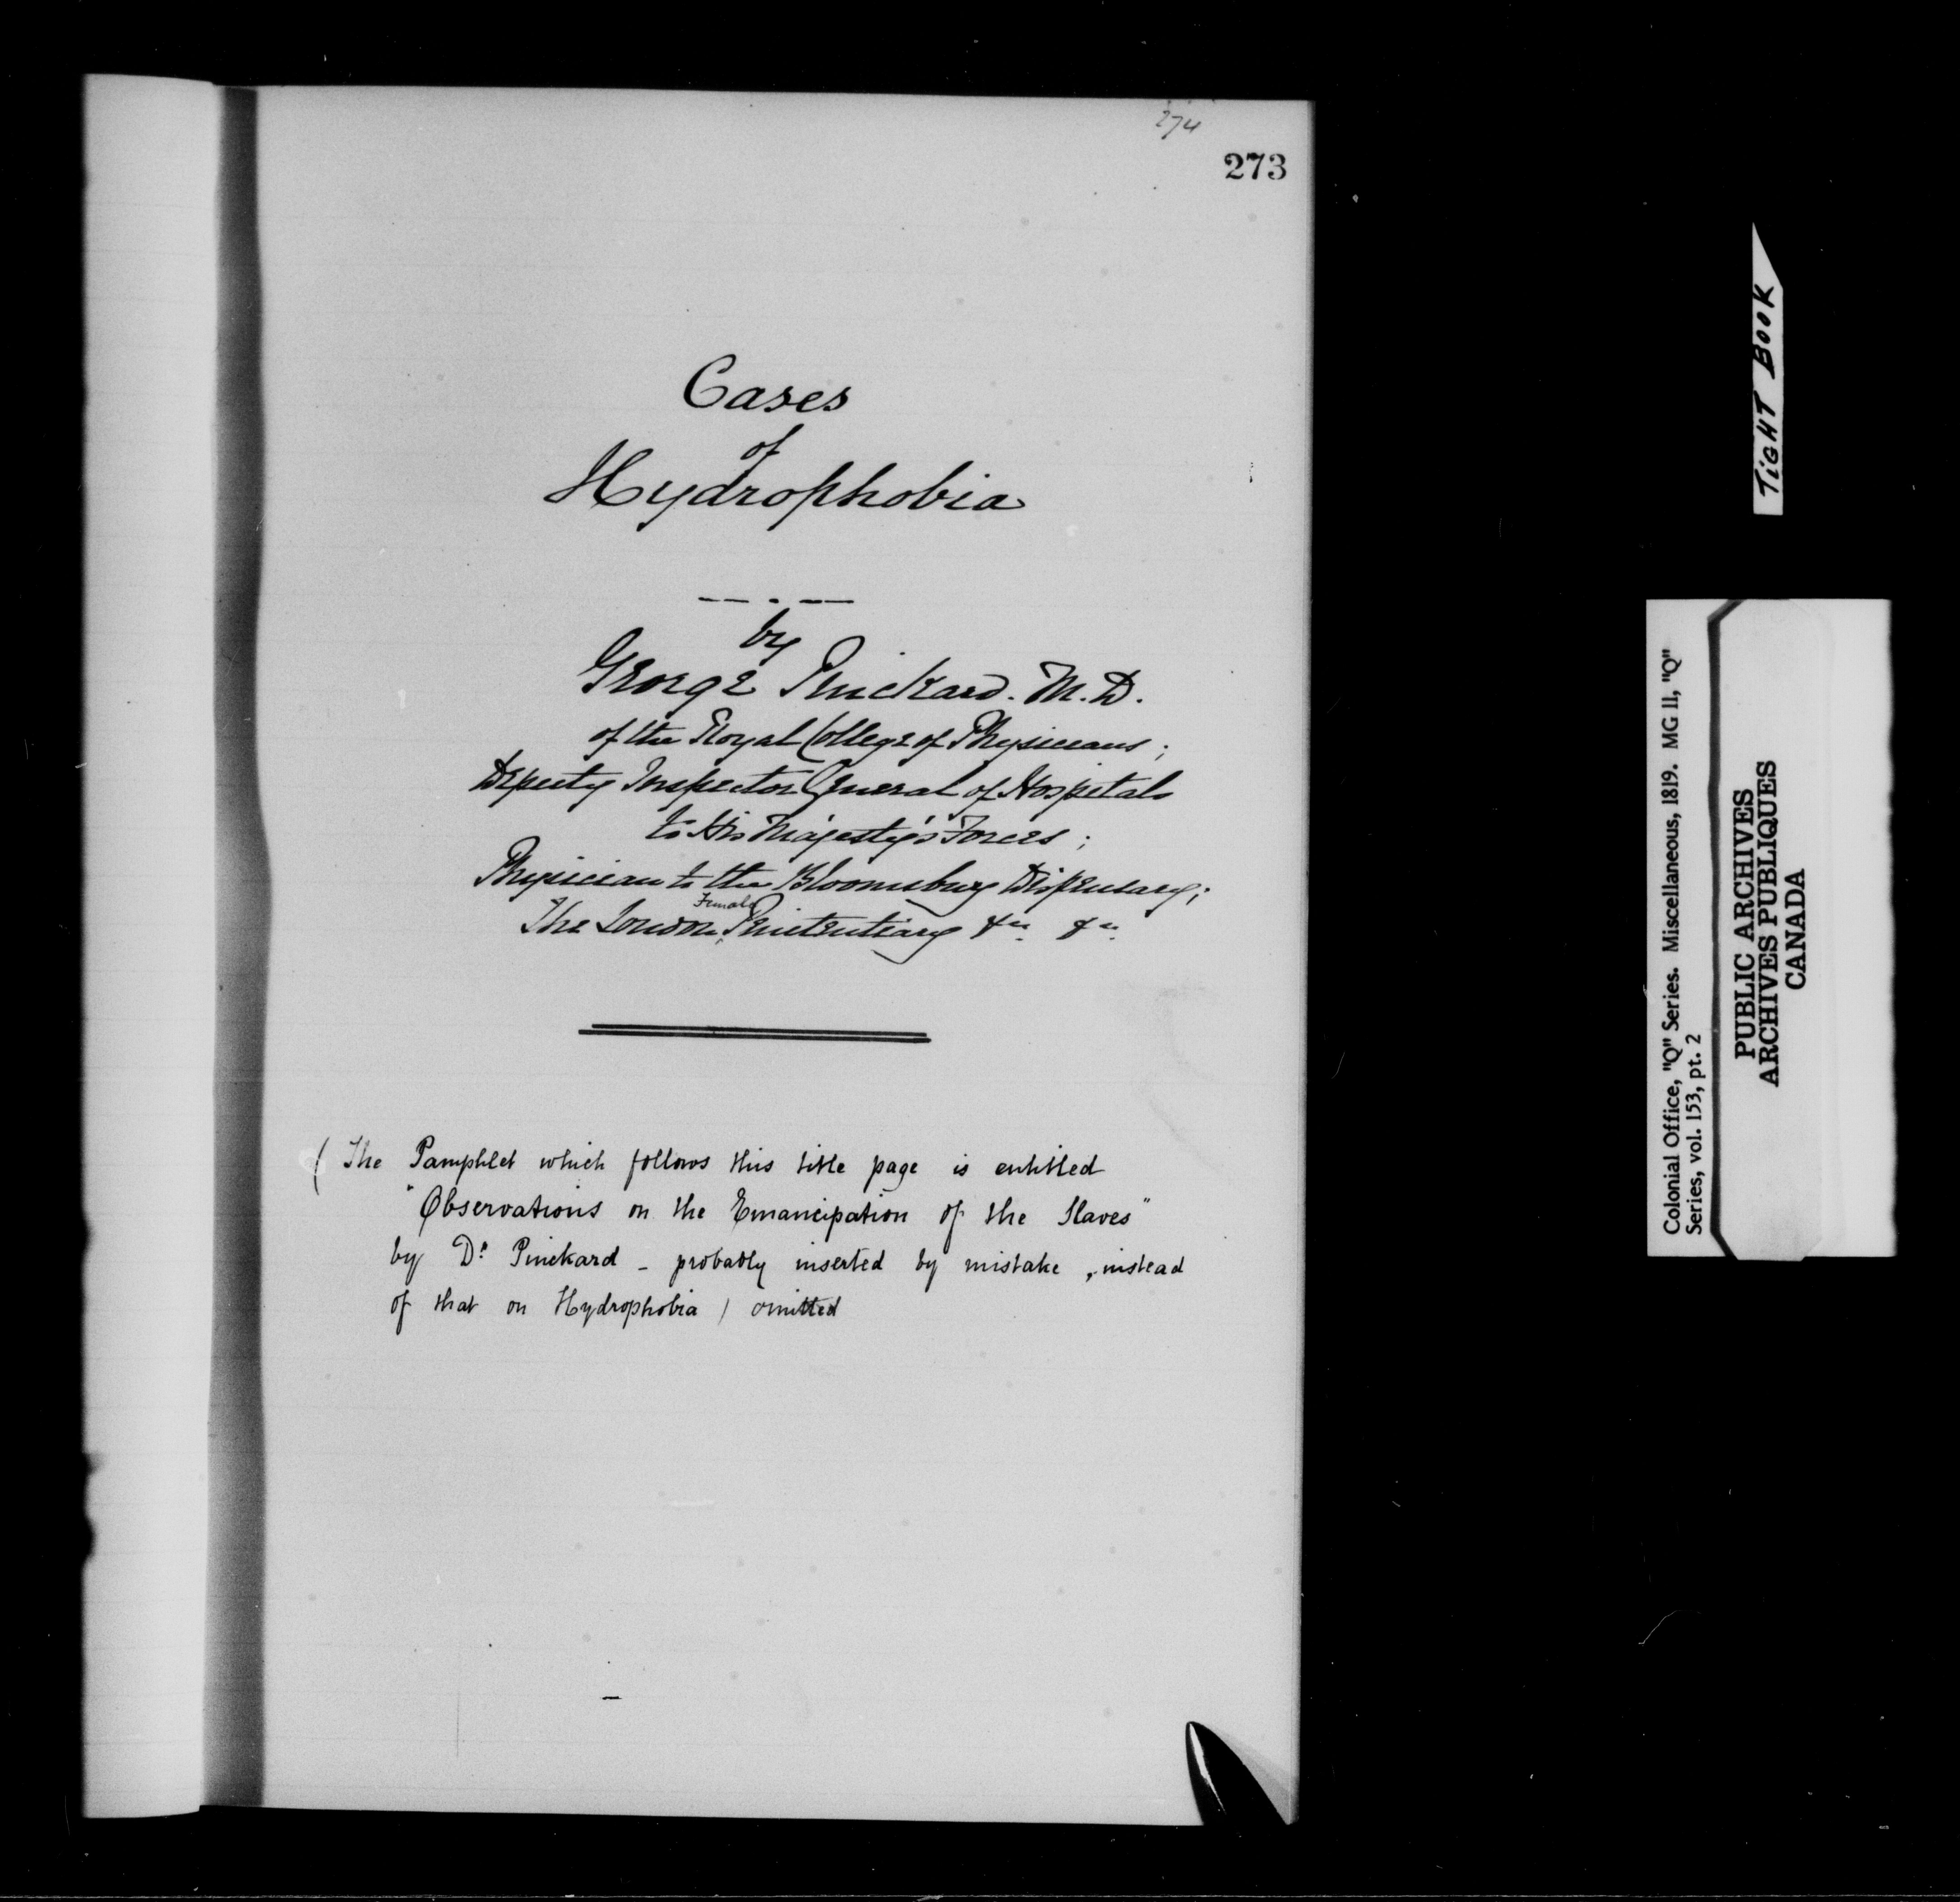 274
273
Cases
of
Hydrophobia
by
George Pinckard. M.D.
of the Royal College of Physicians;
Deputy Inspector General of Hospitals
to His Majesty's Forces;
Physician to the Bloomsbury Dispensary;
Female
The London Penitentiary &c. &c.
( The Pamphlet which follows this title page is entitled
"Observations on the Emancipation of the Slaves"
by Dr. Pinckard - probably inserted by mistake, instead
of that on Hydrophobia ) omitted
TIGHT BOOK
Colonial Office, "Q" Series. Miscellaneous, 1819. MG 11, "Q"
Series, vol. 153, pt. 2
PUBLIC ARCHIVES
ARCHIVES PUBLIQUES
CANADA